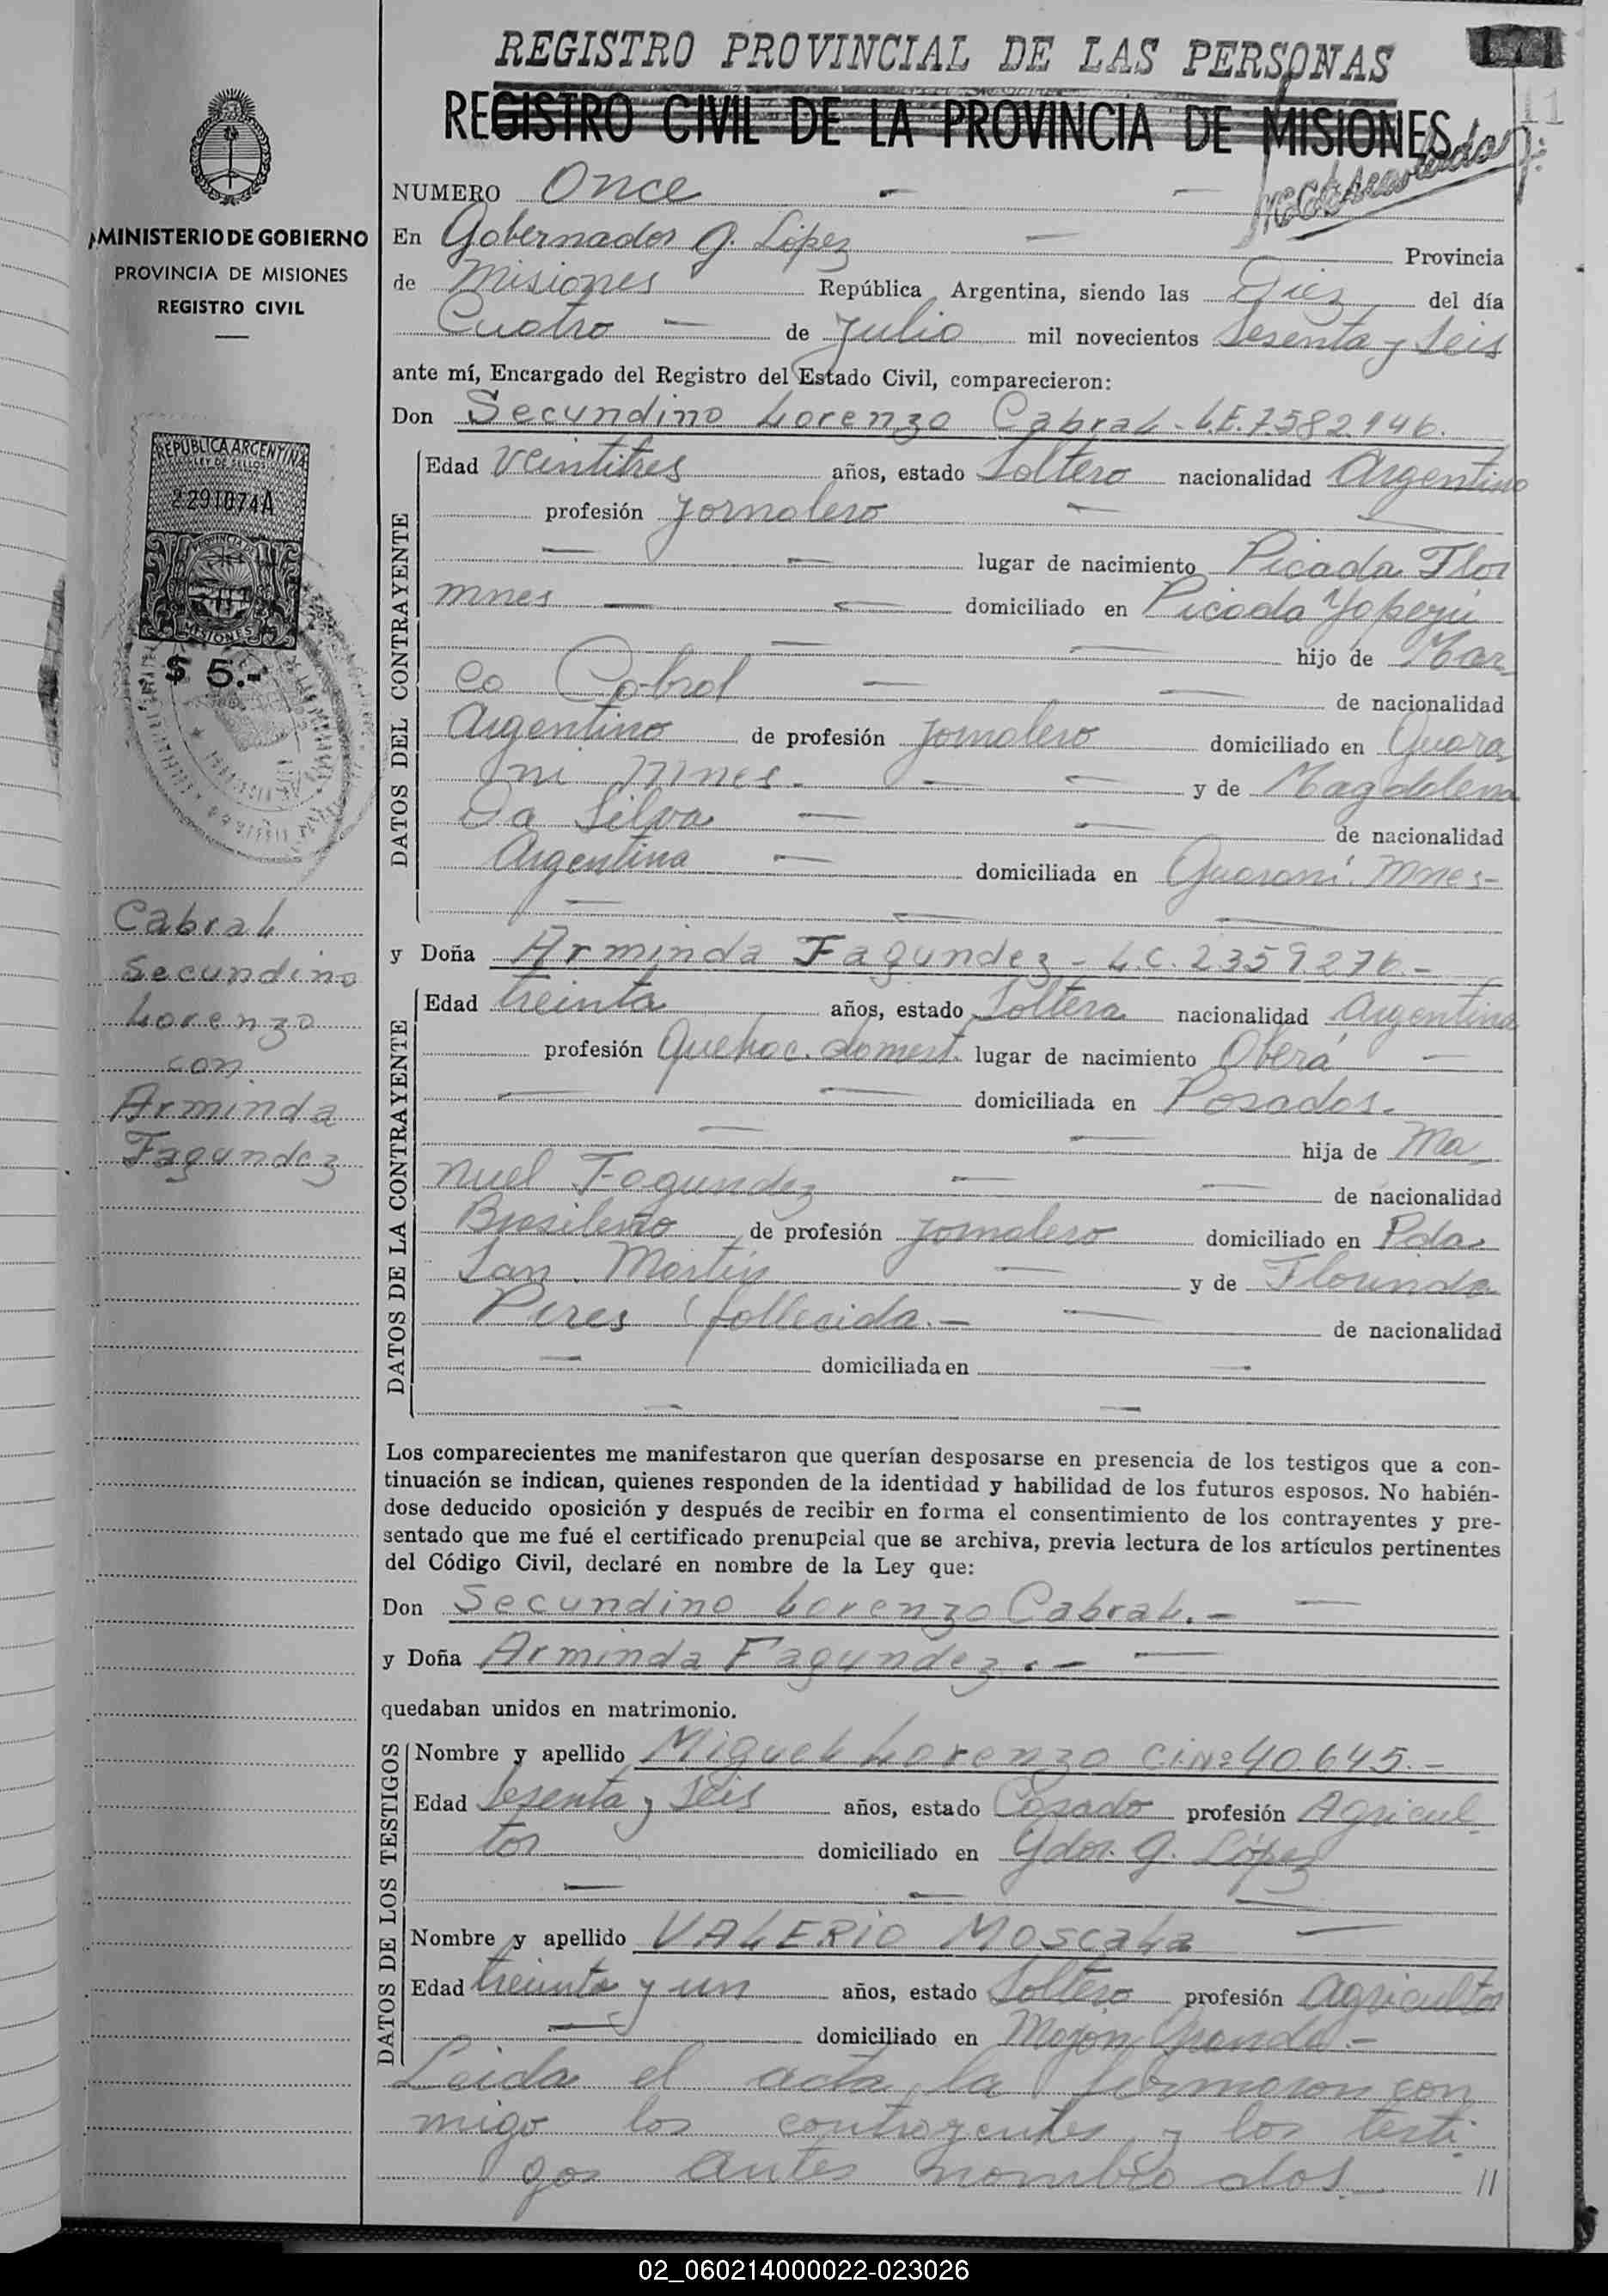 REGISTRO PROVINCIAL DE LAS PERSONAS
171
REGISTRO CIVIL DE LA PROVINCIA DE MISIONES
11
MINISTERIO DE GOBIERNO
PROVINCIA DE MISIONES
REGISTRO CIVIL
REPUBLICA ARGENTINA
LEY DE SELLOS
2291074A
PROVINCIA DE
MISIONES
$ 5.-
Cabral
Secundino
Lorenzo
con
Arminda
Fagundez
NUMERO Once
En Gobernador G. López Provincia
de Misiones República Argentina, siendo las Diez del día
Cuatro de Julio mil novecientos Sesenta y Seis
ante mí, Encargado del Registro del Estado Civil, comparecieron:
Don Secundino Lorenzo Cabral - L.E. 7.582.146.
DATOS DEL CONTRAYENTE
Edad veintitres años, estado Soltero nacionalidad Argentino
profesión Jornalero
lugar de nacimiento Picada Flor
mnes domiciliado en Picada Yapeyú
hijo de Mar
co Cabral de nacionalidad
Argentino de profesión Jornalero domiciliado en Guara
ni mnes. y de Magdalena
Da Silva de nacionalidad
Argentina domiciliada en Guaraní. mnes-
y Doña Arminda Fagundez - L.C. 2359.276.-
DATOS DE LA CONTRAYENTE
Edad treinta años, estado Soltera nacionalidad Argentina
profesión Quehac. domest. lugar de nacimiento Oberá
domiciliada en Posadas.
hija de Ma
nuel Fagundez de nacionalidad
Brasileño de profesión Jornalero domiciliado en Pda
San Martín y de Florinda
Peres (fallecida.- de nacionalidad
domiciliada en
Los comparecientes me manifestaron que querían desposarse en presencia de los testigos que a con-
tinuación se indican, quienes responden de la identidad y habilidad de los futuros esposos. No habién-
dose deducido oposición y después de recibir en forma el consentimiento de los contrayentes y pre-
sentado que me fué el certificado prenupcial que se archiva, previa lectura de los artículos pertinentes
del Código Civil, declaré en nombre de la Ley que:
Don Secundino Lorenzo Cabral.-
y Doña Arminda Fagundez.-
quedaban unidos en matrimonio.
DATOS DE LOS TESTIGOS
Nombre y apellido Miguel Lorenzo C.I.Nº 40.645.-
Edad Sesenta y Seis años, estado Casado profesión Agricul
tor domiciliado en Gdor. G. López
Nombre y apellido VALERIO Moscala
Edad treinta y un años, estado Soltero profesión agricultor
domiciliado en Mojon Grande.-
Leida el acta, la firmaron con
migo los contrayentes y los testi
gos antes nombrados. //
02_060214000022-023026